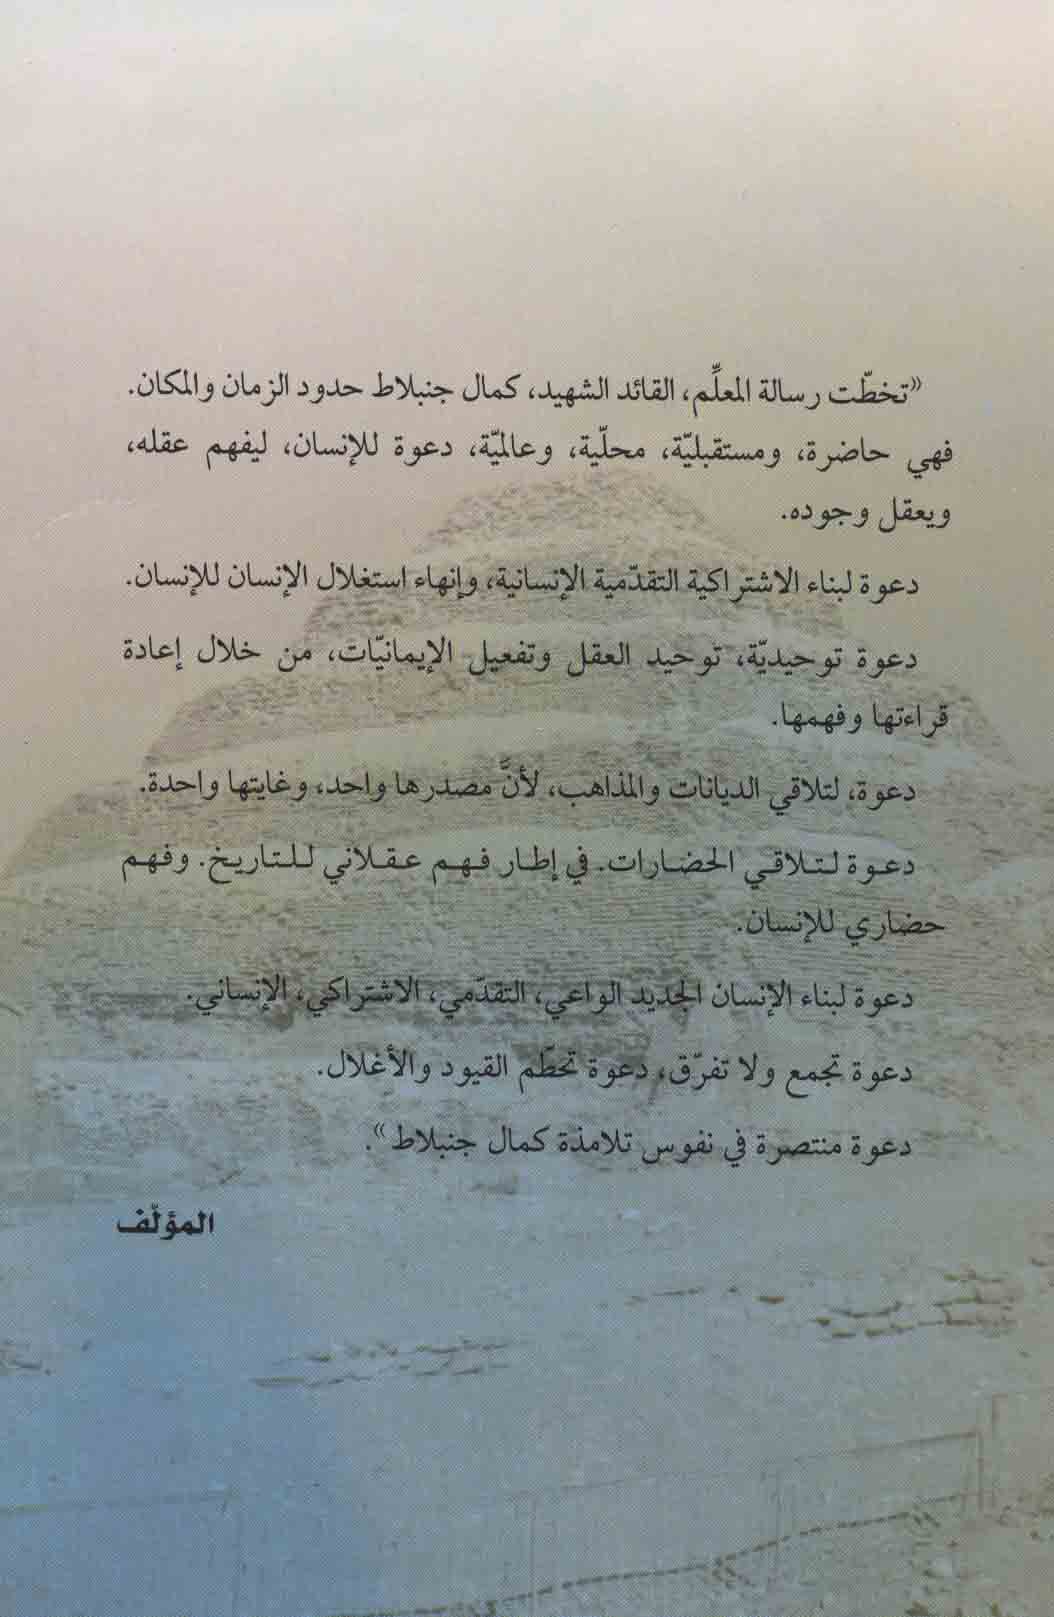 «تخطّت رسالة المعلِّم، القائد الشهيد، كمال جنبلاط حدود الزمان والمكان.
فهي حاضرة، ومستقبليّة، محلّية، وعالميّة، دعوة للإنسان، ليفهم عقله،
ويعقل وجوده.
دعوة لبناء الاشتراكية التقدّمية الإنسانية، وإنهاء استغلال الإنسان للإنسان.
دعوة توحيديّة، توحيد العقل وتفعيل الإيمانيّات، من خلال إعادة
قراءتها وفهمها.
دعوة، لتلاقي الديانات والمذاهب، لأنَّ مصدرها واحد، وغايتها واحدة.
دعوة لتلاقي الحضارات. في إطار فهم عقلاني للتاريخ. وفهم
حضاري للإنسان.
دعوة لبناء الإنسان الجديد الواعي، التقدّمي، الاشتراكي، الإنساني.
دعوة تجمع ولا تفرّق، دعوة تحطّم القيود والأغلال.
دعوة منتصرة في نفوس تلامذة كمال جنبلاط».
المؤلّف